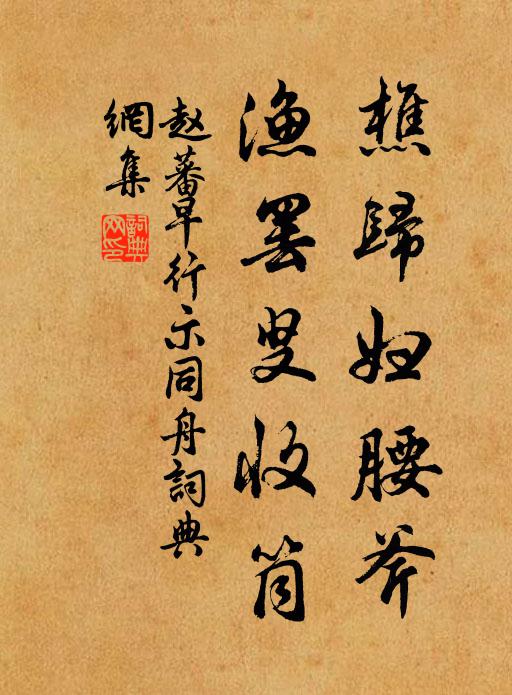 樵歸婦腰斧
漁罢叟收筒
赵蕃早行示同舟詞典
網集
詞典網印